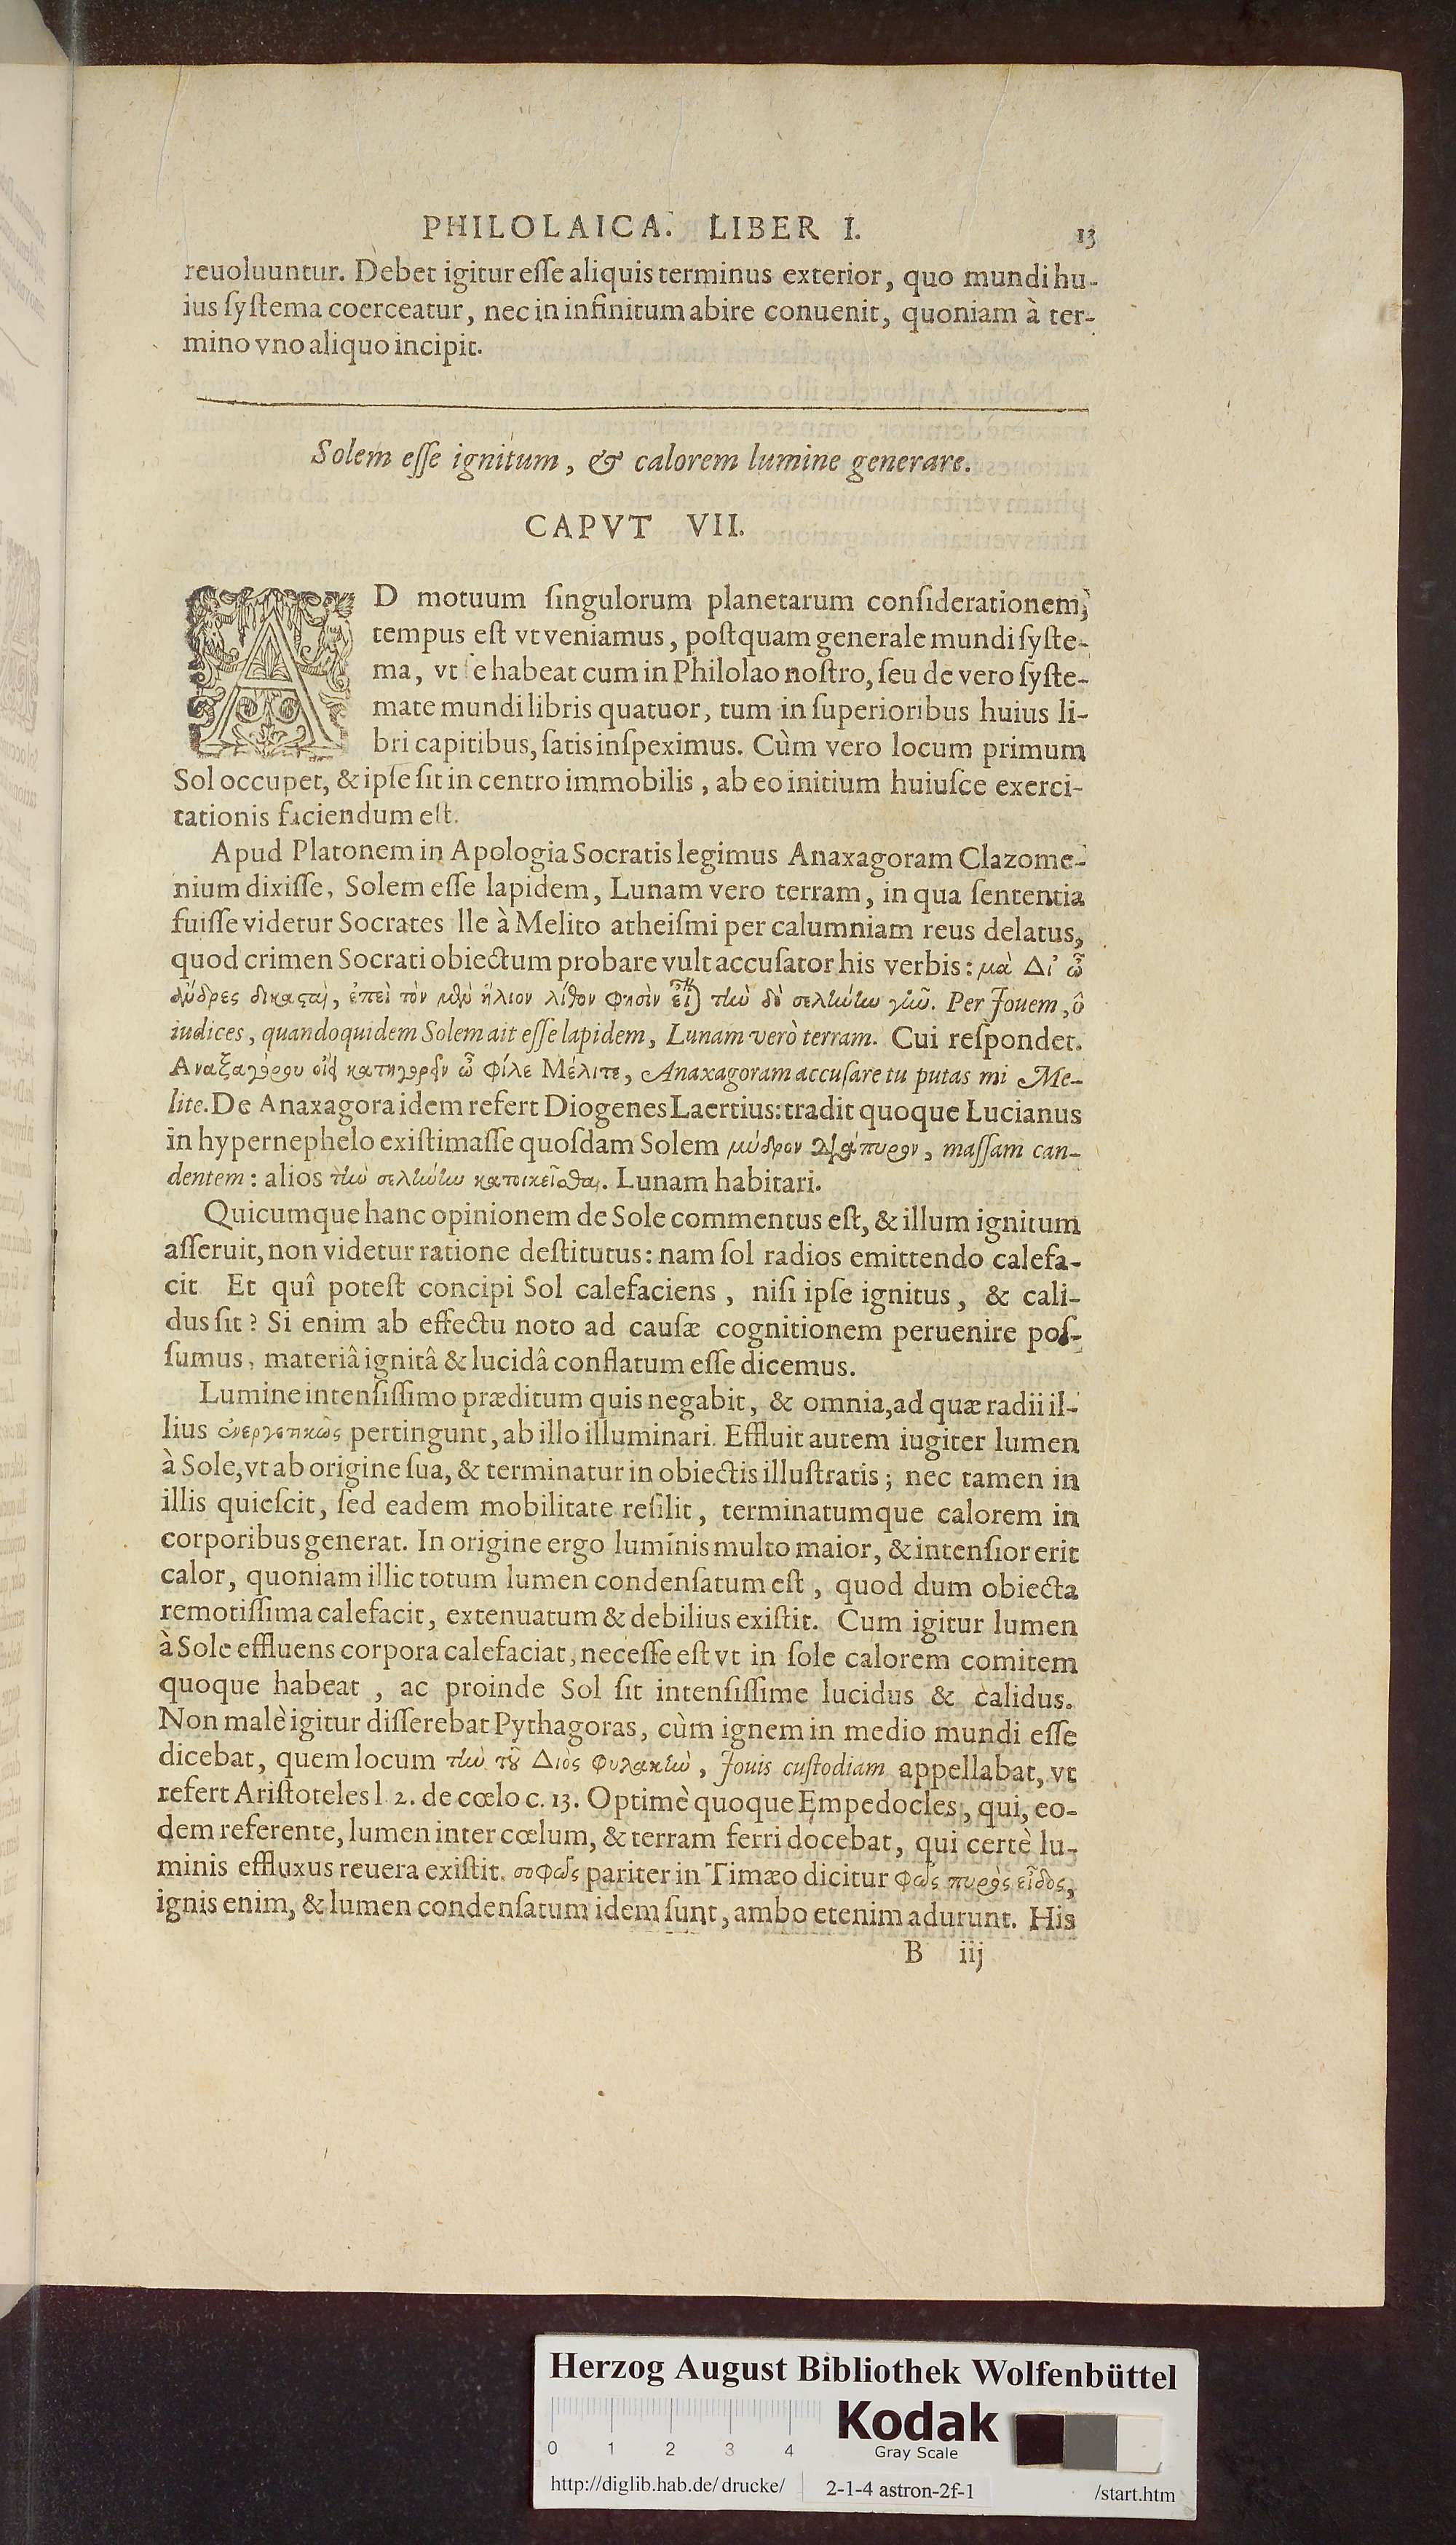 PHILOLAICA. LIBER I. 13
reuoluuntur. Debet igitur eſſe aliquis terminus exterior, quo mundi hu-
ius ſyſtema coerceatur, nec in infinitum abire conuenit, quoniam à ter-
mino vno aliquo incipit.
Solem eſſe ignitum, & calorem lumine generare.
CAPVT VII.
AD motuum ſingulorum planetarum conſiderationem,
tempus eſt vt veniamus, poſtquam generale mundi ſyſte-
ma, vt ſe habeat cum in Philolao noſtro, ſeu de vero ſyſte-
mate mundi libris quatuor, tum in ſuperioribus huius li-
bri capitibus, ſatis inſpeximus. Cùm vero locum primum
Sol occupet, & ipſe ſit in centro immobilis, ab eo initium huiuſce exerci-
tationis faciendum eſt.
Apud Platonem in Apologia Socratis legimus Anaxagoram Clazome-
nium dixiſſe, Solem eſſe lapidem, Lunam vero terram, in qua ſententia
fuiſſe videtur Socrates lle à Melito atheiſmi per calumniam reus delatus,
quod crimen Socrati obiectum probare vult accuſator his verbis: μὰ Δι᾽ ὦ
ἄνδρες δικασταὶ, ἐπεὶ τὸν μὲν ἥλιον λίθον φησὶν εἶναι τὴν δὲ σελήνην γῆν. Per Jouem, ô
iudices, quandoquidem Solem ait eſſe lapidem, Lunam verò terram. Cui reſpondet.
Αναξαγόρου οἴει κατηγορεῖν ὦ φίλε Μέλιτε, Anaxagoram accuſare tu putas mi Me-
lite. De Anaxagora idem refert Diogenes Laertius: tradit quoque Lucianus
in hypernephelo exiſtimaſſe quoſdam Solem μύδρον διάπυρον, maſſam can-
dentem: alios τὴν σελήνην κατοικεῖσθαι. Lunam habitari.
Quicumque hanc opinionem de Sole commentus eſt, & illum ignitum
aſſeruit, non videtur ratione deſtitutus: nam ſol radios emittendo calefa-
cit Et quî poteſt concipi Sol calefaciens, niſi ipſe ignitus, & cali-
dus ſit? Si enim ab effectu noto ad cauſæ cognitionem peruenire poſ-
ſumus, materiâ ignitâ & lucidâ conflatum eſſe dicemus.
Lumine intenſiſſimo præditum quis negabit, & omnia, ad quæ radii il-
lius ἐνεργητικῶς pertingunt, ab illo illuminari. Effluit autem iugiter lumen
à Sole, vt ab origine ſua, & terminatur in obiectis illuſtratis; nec tamen in
illis quieſcit, ſed eadem mobilitate reſilit, terminatumque calorem in
corporibus generat. In origine ergo luminis multo maior, & intenſior erit
calor, quoniam illic totum lumen condenſatum eſt, quod dum obiecta
remotiſſima calefacit, extenuatum & debilius exiſtit. Cum igitur lumen
à Sole effluens corpora calefaciat, neceſſe eſt vt in ſole calorem comitem
quoque habeat, ac proinde Sol ſit intenſiſſime lucidus & calidus.
Non malè igitur diſſerebat Pythagoras, cùm ignem in medio mundi eſſe
dicebat, quem locum τὴν τοῦ Διὸς φυλακὴν, Jouis cuſtodiam appellabat, vt
refert Ariſtoteles l 2. de cœlo c. 13. Optimè quoque Empedocles, qui, eo-
dem referente, lumen inter cœlum, & terram ferri docebat, qui certè lu-
minis effluxus reuera exiſtit. σοφῶς pariter in Timæo dicitur φῶς πυρὸς εἶδος,
ignis enim, & lumen condenſatum idem ſunt, ambo etenim adurunt. His
B iij
Herzog August Bibliothek Wolfenbüttel
Kodak
Gray Scale
0 1 2 3 4
http://diglib.hab.de/drucke/ 2-1-4 astron-2f-1 /start.htm